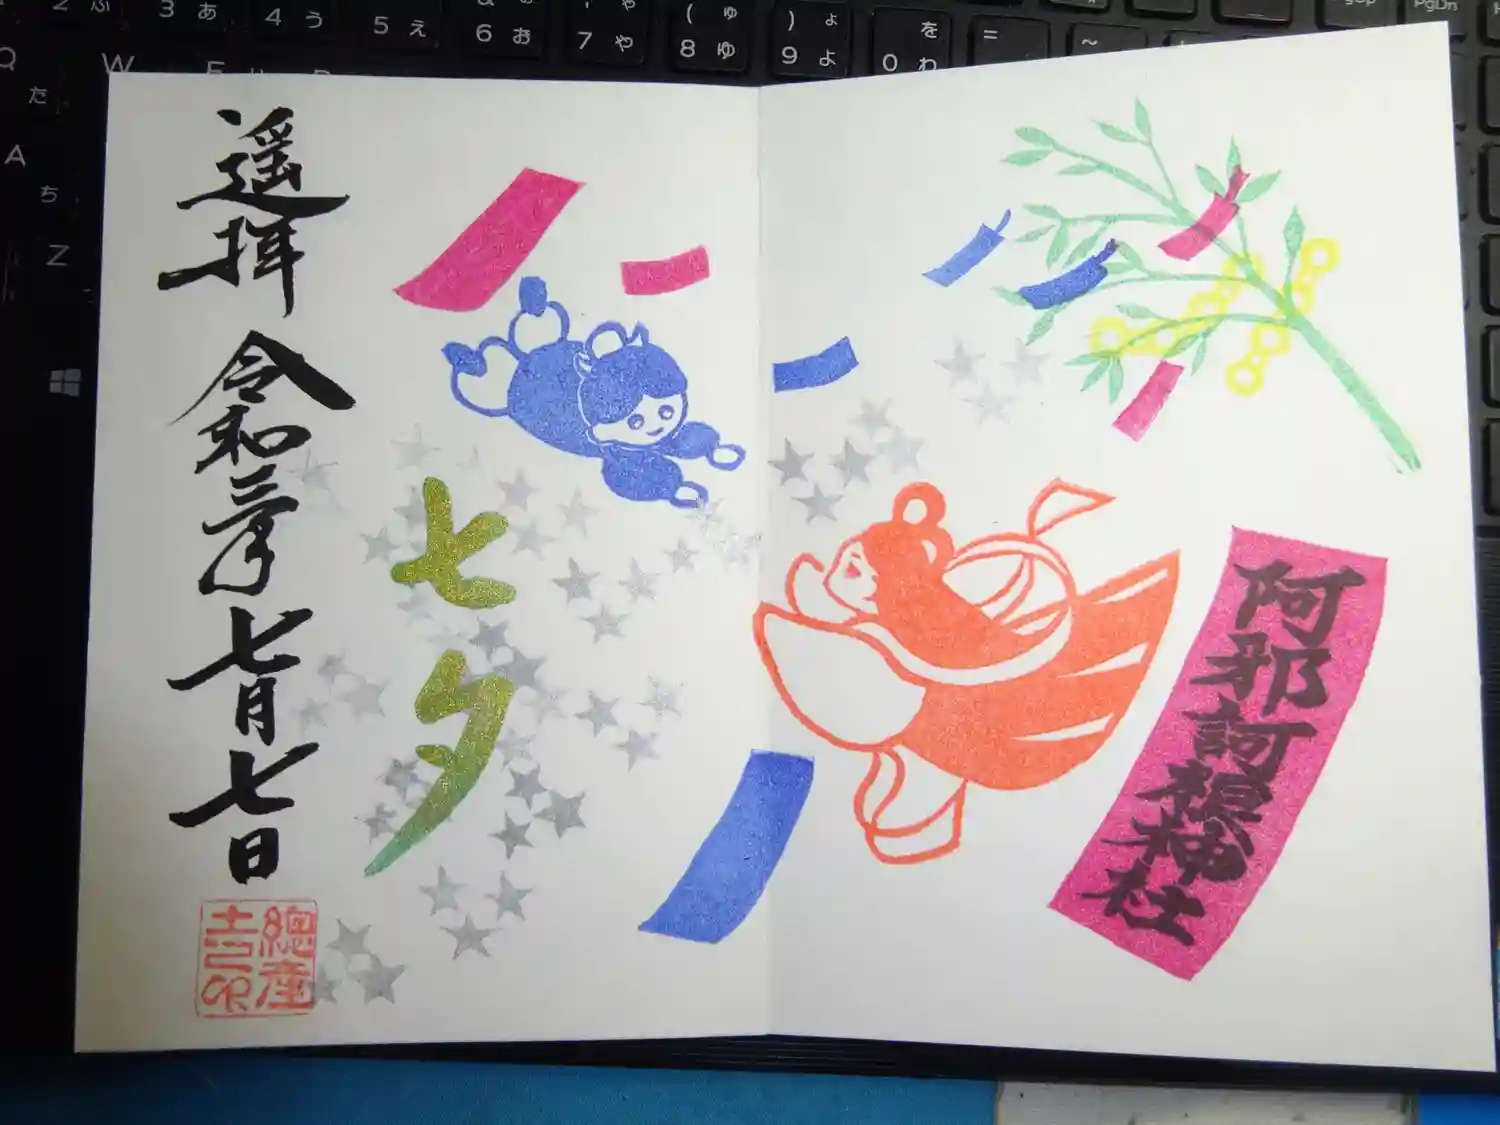 阿邪訶根神社
七夕
遥拝 令和三年七月七日
總産
土印
2 ふ
3 あ
4 う
5 え
6 お
7 や
( ゅ
8 ゆ
) ょ
9 よ
を
0 わ
=
~
PgDn
Q
た
W
A
ち
Z